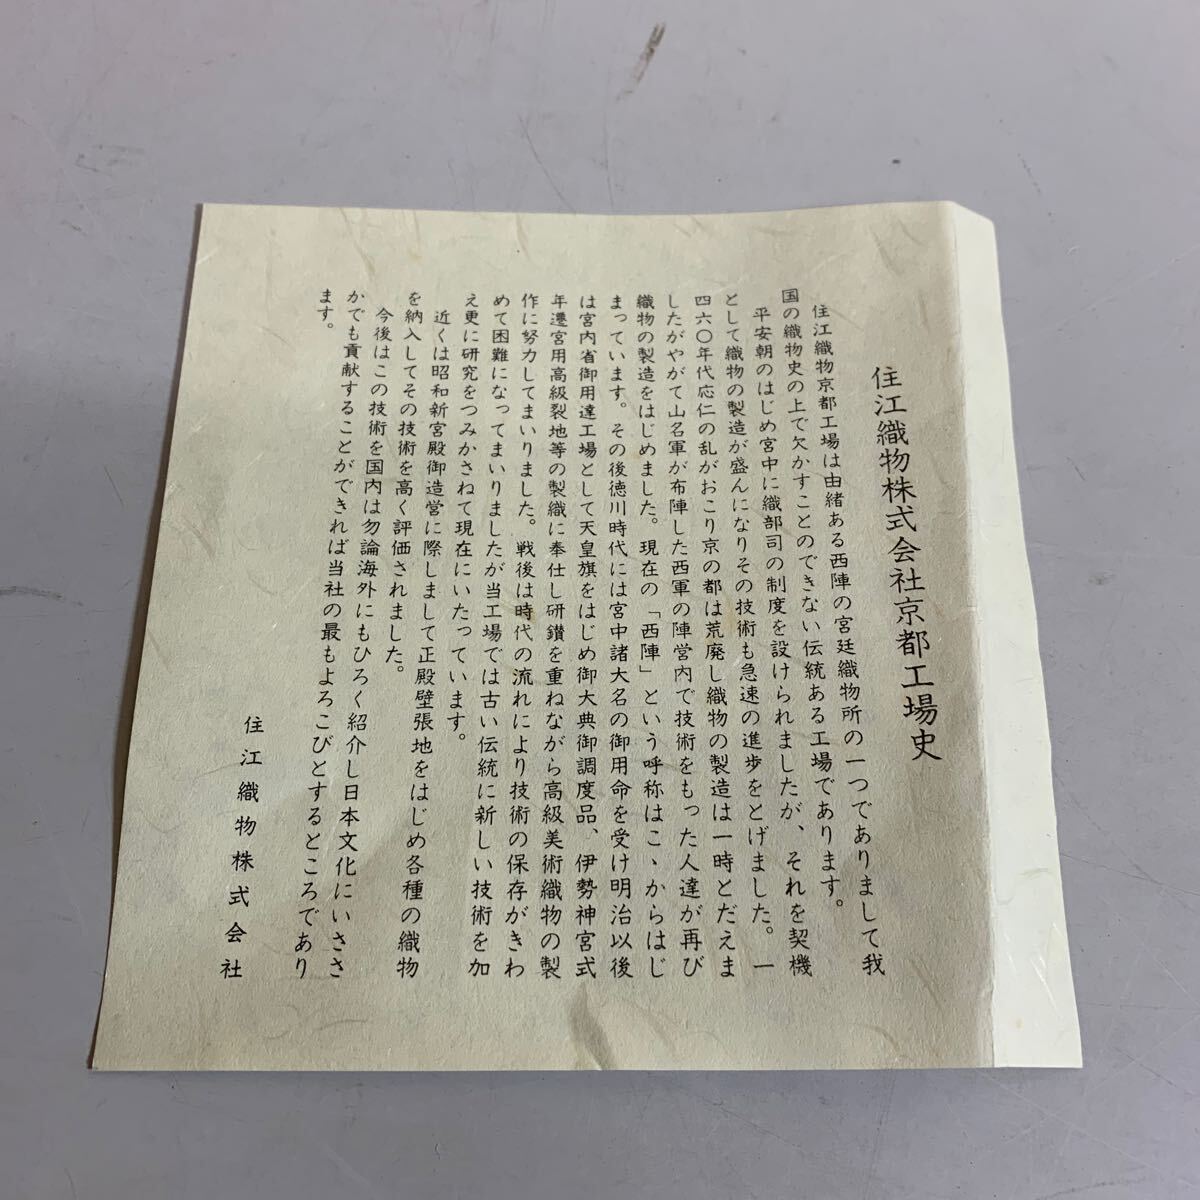 住江織物株式会社京都工場史
住江織物京都工場は由緒ある西陣の宮廷織物所の一つでありまして我
国の織物史の上で欠かすことのできない伝統ある工場であります。
平安朝のはじめ宮中に織部司の制度を設けられましたが、それを契機
として織物の製造が盛んになりその技術も急速の進歩をとげました。一
四六〇年代応仁の乱がおこり京の都は荒廃し織物の製造は一時とだえま
したがやがて山名軍が布陣した西軍の陣営内で技術をもった人達が再び
織物の製造をはじめました。現在の「西陣」という呼称はこゝからはじ
まっています。その後徳川時代には宮中諸大名の御用命を受け明治以後
は宮内省御用達工場として天皇旗をはじめ御大典御調度品、伊勢神宮式
年遷宮用高級裂地等の製織に奉仕し研鑚を重ねながら高級美術織物の製
作に努力してまいりました。戦後は時代の流れにより技術の保存がきわ
めて困難になってまいりましたが当工場では古い伝統に新しい技術を加
え更に研究をつみかさねて現在にいたっています。
近くは昭和新宮殿御造営に際しまして正殿壁張地をはじめ各種の織物
を納入してその技術を高く評価されました。
今後はこの技術を国内は勿論海外にもひろく紹介し日本文化にいささ
かでも貢献することができれば当社の最もよろこびとするところであり
ます。
住江織物株式会社